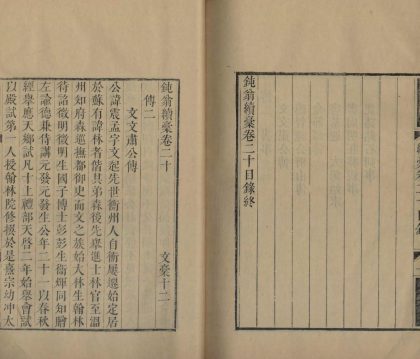 鈍翁續稾卷二十目錄終
鈍翁續稾卷二十 文稾十二
傳二
文文肅公傳
公諱震孟字文起先世衡州人自衡屢遷始定居
於蘇有諱林者偕其弟森後先舉進士林官至溫
州知府森巡撫都御史而文之族始大林生翰林
待詔徵明徵明生國子博士彭彭生衞輝同知贈
左諭德兼侍講元發元發生公年二十一以春秋
經舉應天鄉試凡十上禮部天啓二年始舉會試
以殿試第一人授翰林院修撰於是熹宗幼冲太